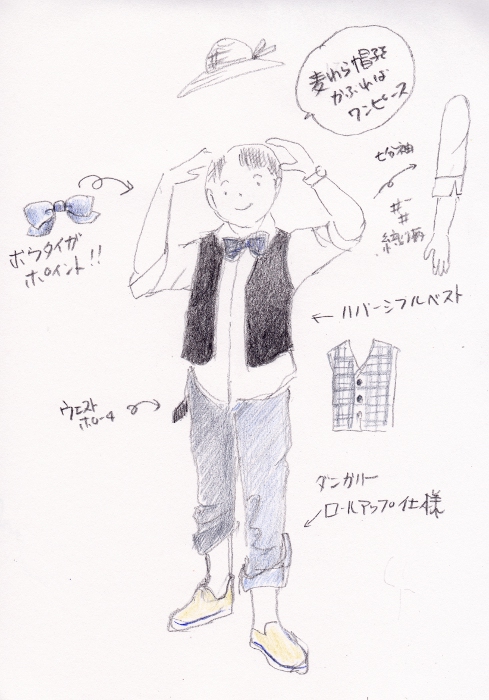 麦わら帽子を
かぶれば
ワンピース
七分袖
ボウタイが
ポイント!!
← リバーシブルベスト
ウエスト
ポーチ
ダンガリー
ロールアップ仕様